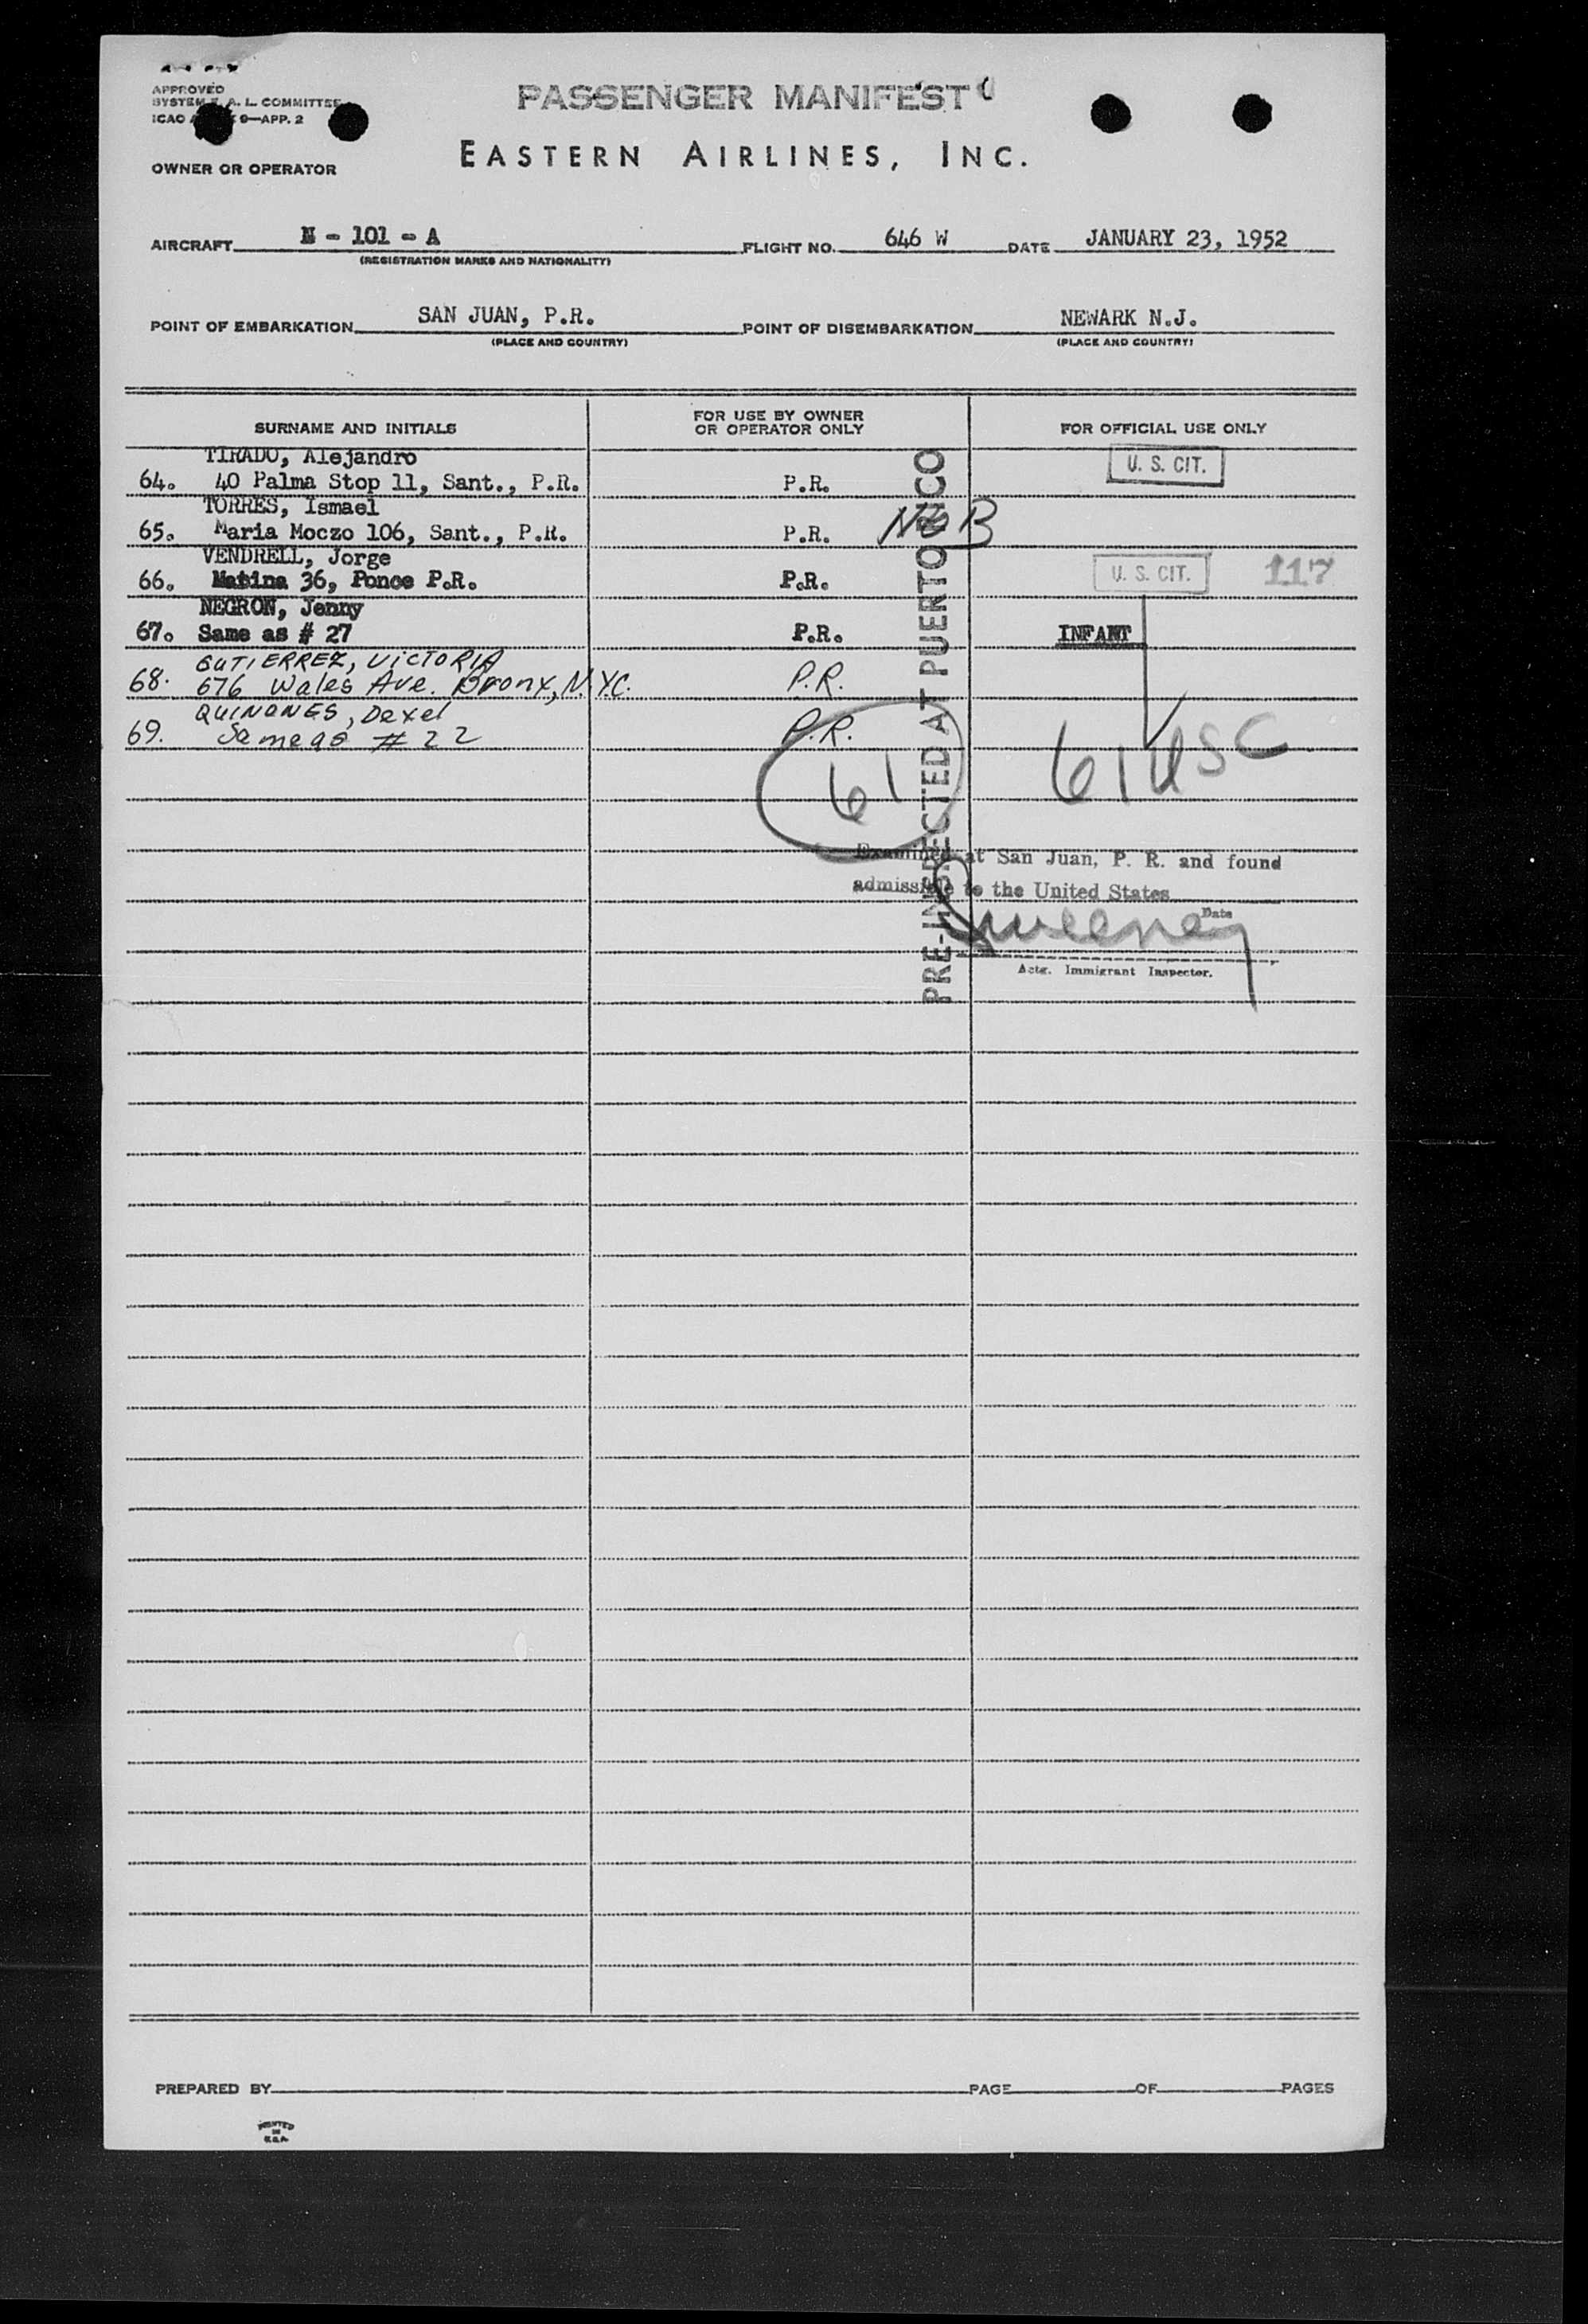 APPROVED
SYSTEM A. L. COMMITTEE
ICAO 9—APP. 2
PASSENGER MANIFEST
EASTERN AIRLINES, INC.
OWNER OR OPERATOR
AIRCRAFT N - 101 - A FLIGHT NO. 646 W DATE JANUARY 23, 1952
(REGISTRATION MARKS AND NATIONALITY)
POINT OF EMBARKATION SAN JUAN, P.R. POINT OF DISEMBARKATION NEWARK N.J.
(PLACE AND COUNTRY) (PLACE AND COUNTRY)
SURNAME AND INITIALS FOR USE BY OWNER OR OPERATOR ONLY FOR OFFICIAL USE ONLY
TIRADO, Alejandro U. S. CIT.
64. 40 Palma Stop 11, Sant., P.R. P.R.
TORRES, Ismael
65. Maria Moczo 106, Sant., P.R. P.R. NOB
VENDRELL, Jorge
66. 36, Ponce P.R. P.R. U. S. CIT. 117
NEGRON, Jenny
67. Same as # 27 P.R. INFANT
GUTIERREZ, VICTORIA
68. 676 Wales Ave. Bronx, N.Y.C. P.R.
QUINONES, Dexel
69. Same as # 22 P.R.
61 61 USC
PRE-INSPECTED AT PUERTO RICO
Examined at San Juan, P. R. and found
admissible to the United States
Date
Sweeney
Actg. Immigrant Inspector.
PREPARED BY PAGE OF PAGES
PRINTED
IN
U.S.A.